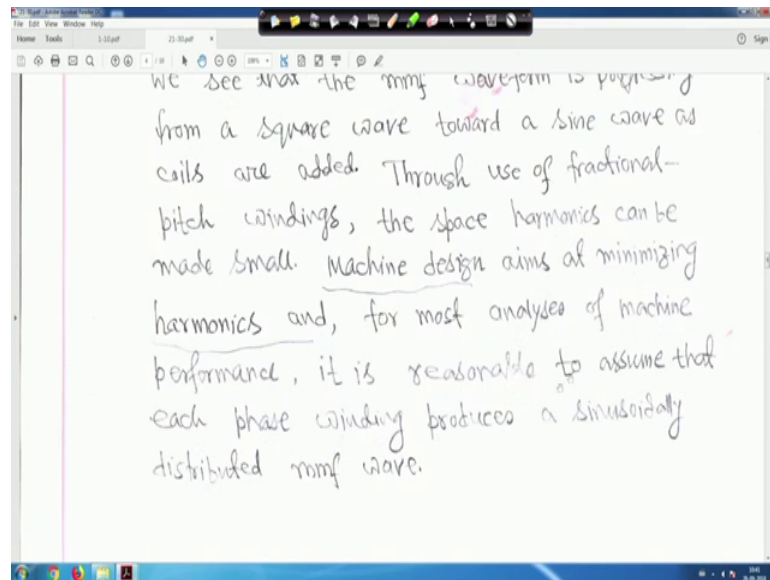 21-30.pdf - Adobe Acrobat Reader DC
File Edit View Window Help
Home Tools 1-10.pdf 21-30.pdf × Sign
we see that the mmf waveform is
from a square wave toward a sine wave as
coils are added. Through use of fractional-
pitch windings, the space harmonics can be
made small. Machine design aims at minimizing
harmonics and, for most analyses of machine
performance, it is reasonable to assume that
each phase winding produces a sinusoidally
distributed mmf wave.